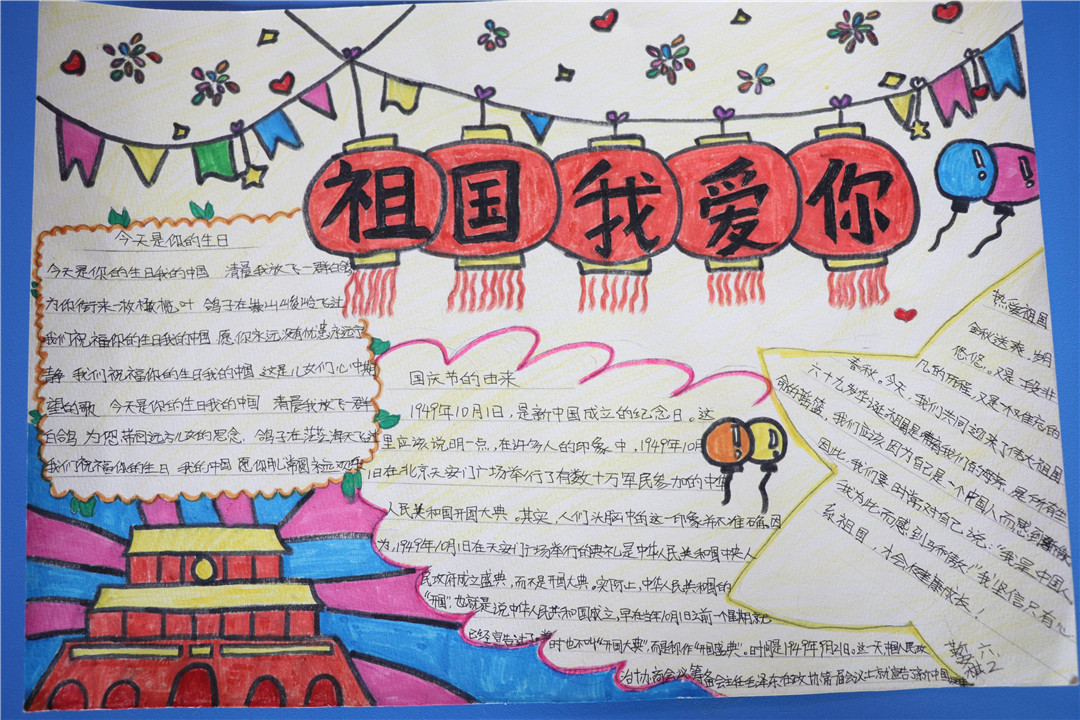 祖国我爱你
今天是你的生日
今天是你的生日我的中国 清晨我放飞一群白鸽
为你衔来一枚橄榄叶 鸽子在崇山峻岭飞过
我们祝福你的生日我的中国 愿你永远没有忧患永远宁
静 我们祝福你的生日我的中国 这是儿女们心中期
望的歌 今天是你的生日我的中国 清晨我放飞一群
白鸽 为您带回远方儿女的思念 鸽子在茫茫海天飞过
我们祝福你的生日 我的中国 愿你月儿常圆永远欢乐
国庆节的由来
1949年10月1日，是新中国成立的纪念日。这
里应该说明一点，在许多人的印象中，1949年10月
1日在北京天安门广场举行了有数十万军民参加的中华
人民共和国开国大典。其实，人们头脑中的这一印象并不准确。因
为，1949年10月1日在天安门广场举行的典礼是中华人民共和国中央人
民政府成立盛典，而不是开国大典。实际上，中华人民共和国的
“开国”，也就是说中华人民共和国成立，早在当年10月1日之前一个星期就
已经宣告过了。当时也不叫“开国大典”，而是称作“开国盛典”。时间是1949年9月21日。这一天中国人民政
治协商会议筹备会主任毛泽东在政协第一届会议上就宣告了新中国
热爱祖国
金秋送爽，岁月
悠悠。又是一段非
凡的历程，又是一个难忘的
春秋。今天，我们共同迎来了伟大祖国
六十九岁生诞。祖国是我们的海绵，是所有生
命的蓝，我们应该因为自己是一个中国人而感到
因此，我们要时常对自己说：“我是中国人
我为此而感到马和傲！”我坚信，只有
祖国，才会健康成长！
六
2